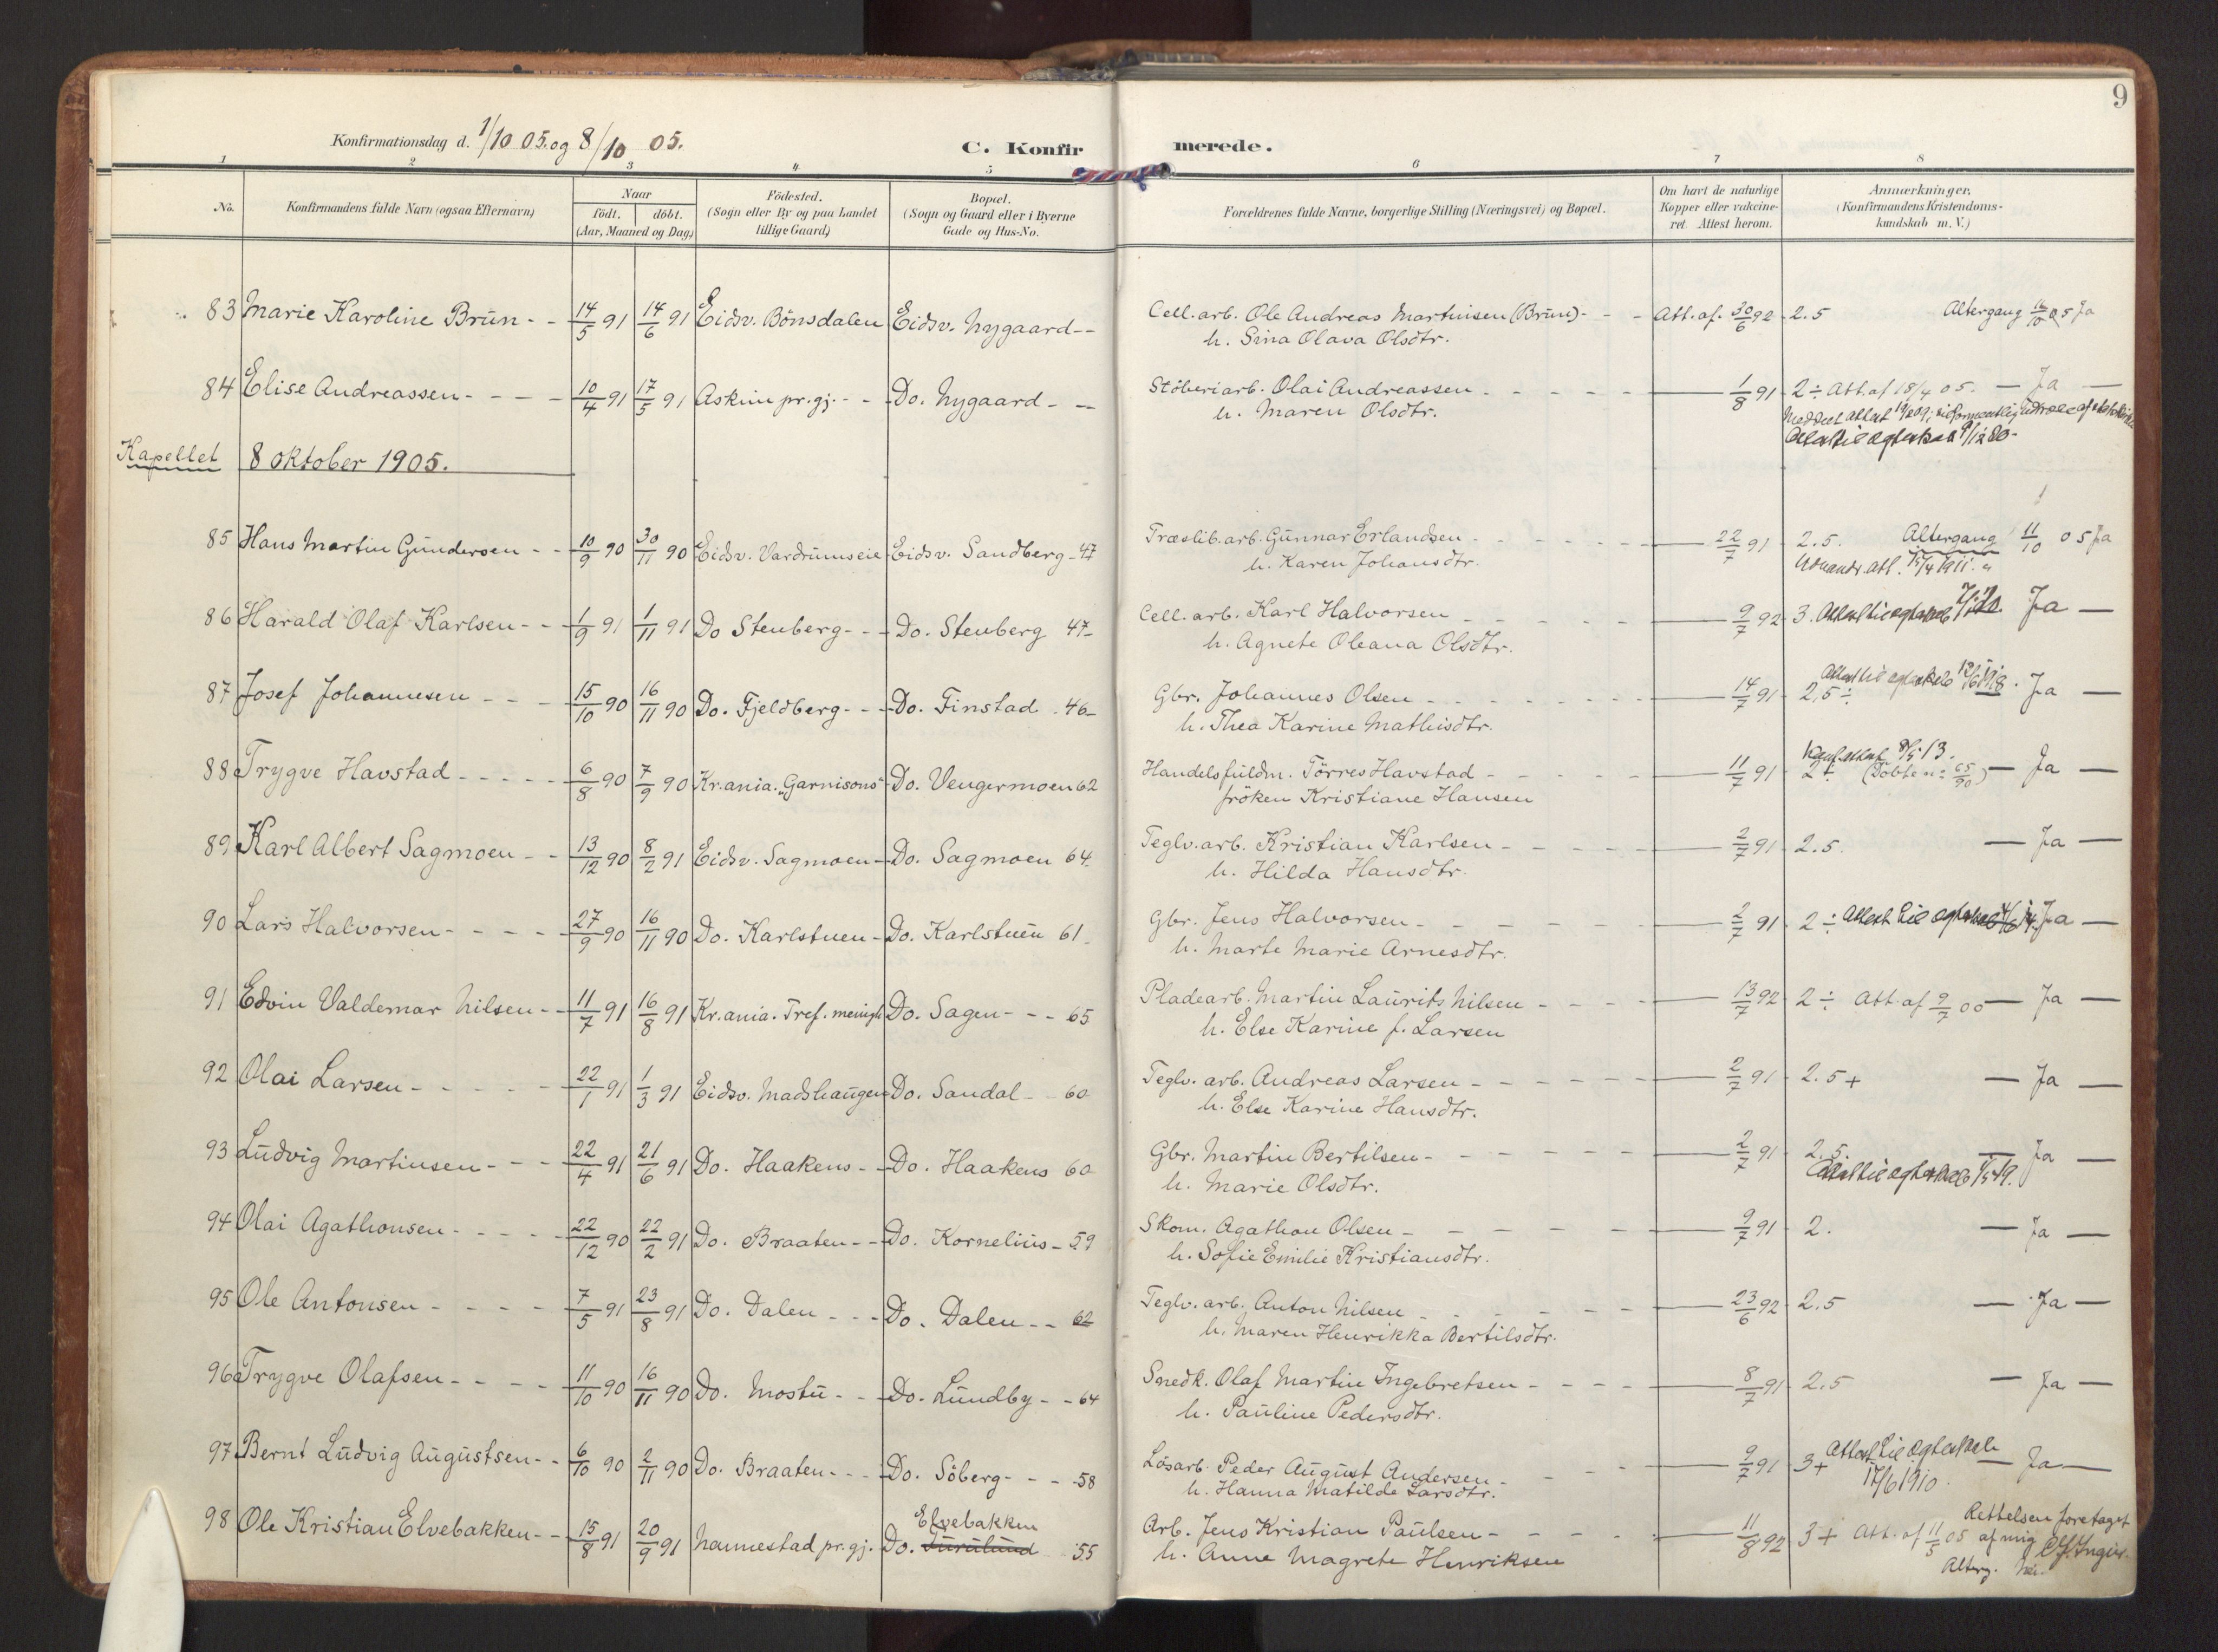 9
Konfirmationsdag d. 1/10 05. og 8/10 05.
C. Konfirmerede.
1 2 3 4 5 6 7 8
No. Konfirmandens fulde Navn (ogsaa Efternavn) Naar født. døbt. (Aar, Maaned og Dag) Födested. (Sogn eller By og paa Landet tillige Gaard) Bopæl. (Sogn og Gaard eller i Byerne Gade og Hus-No. Forældrenes fulde Navne, borgerlige Stilling (Næringsvei) og Bopæl. Om havt de naturlige Kopper eller vakcineret. Attest herom. Anmærkninger. (Konfirmandens Kristendomskundskab m. V.)
83 Marie Karoline Brün - - 14/5 91 14/6 91 Eidsv. Bönsdalen Eidsv. Nygaard - - Cell. arb. Ole Andreas Martinisen (Brün) - - - Att. af. 30/6 92 2.5 Altergang 11/10 05 Ja
h. Sina Olava Olsdtr.
84 Elise Andreassen - - - - 10/4 91 17/5 91 Askim pr. gj. - - Do. Nygaard - - Stöberiarb. Olai Andreassen - - - - - 1/8 91 2 ÷ Att. af 18/4 05. — Ja —
h. Maren Olsdtr.
Kapellet 8 oktober 1905.
85 Hans Martin Gündersen - - 10/9 90 30/11 90 Eidsv. Vardrumseie Eidsv. Sandberg - 47 Træslib. arb. Günnar Erlandsen - - - - - 22/7 91 2.5. Altergang 11/10 05 Ja
h. Karen Johansdtr. Udvandr. att. 15/4 1911.
86 Harald Olaf Karlsen - - 1/9 91 1/11 91 Do Stenberg - - - Do. Stenberg 47 - Cell. arb. Karl Halvorsen - - - - - 9/7 92 3. Attest til ægteskab Ja —
h. Agnete Oleana Olsdtr.
87 Josef Johannesen - - - 15/10 90 16/11 90 Do. Fjeldberg - - - Do. Finstad . 46 - Gbr. Johannes Olsen - - - - - - 14/7 91 2,5 ÷ Attest til ægteskab 12/6 1918. Ja —
h. Thea Karine Mathisdtr.
88 Trygve Havstad - - - - - 6/8 90 7/9 90 Kr.ania. „Garnisons" Do. Vengermoen 62 Handelsfüldm. Törres Havstad - - - - - 11/7 91 2 ÷ (Döbte n: 65/90) — Ja —
fröken Kristiane Hansen
89 Karl Albert Sagmoen - - 13/12 90 8/2 91 Eidsv. Sagmoen - Do. Sagmoen 64. Teglv. arb. Kristian Karlsen - - - - - 2/7 91 2.5. — Ja —
h. Hilda Hansdtr.
90 Lars Halvorsen - - - - - 27/9 90 16/11 90 Do. Karlstuen - Do. Karlstuen 61. Gbr. Jens Halvorsen - - - - - - 2/7 91 2 ÷ Attest til ægteskab 4/6 14. Ja —
h. Marte Marie Arnesdtr.
91 Edvin Valdemar Nilsen - - 11/7 91 16/8 91 Kr.ania. Tref. menigh Do. Sagen - - - 65 Pladearb. Martin Laurits Nilsen - - - - 13/7 92 2 ÷ Att. af 9/7 00 — Ja —
h. Else Karine f. Larsen
92 Olai Larsen - - - - - 22/1 91 1/3 91 Eidsv. Madshaugen Do. Sandal - - 60 Teglv. arb. Andreas Larsen - - - - - 2/7 91 2.5 + — Ja —
h. Else Karine Hansdtr.
93 Ludvig Martinsen - - - 22/4 91 21/6 91 Do. Haakens - - Do. Haakens 60 Gbr. Martin Bertilsen - - - - - - 2/7 91 2.5. — Ja —
h. Marie Olsdtr. Attest til ægteskab
94 Olai Agathonsen - - - - - 22/12 90 22/2 91 Do. Braaten - - Do. Kornelius - 59 Skom. Agathon Olsen - - - - - 9/7 91 2. — Ja —
h. Sofie Emilie Kristiansdtr.
95 Ole Antonsen - - - - - 7/5 91 23/8 91 Do. Dalen - - - Do. Dalen - - 62 Teglv. arb. Anton Nilsen - - - - - 23/6 92 2.5 — Ja —
h. Maren Henrikka Bertilsdtr.
96 Trygve Olafsen - - - - 11/10 90 16/11 90 Do. Mostu - - - Do. Lundby - - 64 Snedk. Olaf Martin Ingebretsen - - - - 8/7 91 2.5 — Ja —
h. Pauline Pedersdtr.
97 Bernt Ludvig Augustsen - - 6/10 90 2/11 90 Do. Braaten - - - Do. Söberg - - - 58 Lösarb. Peder August Andersen - - - 9/7 91 3+ Attest til Ægteskab — Ja —
h. Hanna Matilde Larsdtr. 17/6 1910.
98 Ole Kristian Elvebakken - - 15/8 91 20/9 91 Nannestad pr. gj. Do. Furulund Elvebakken 55 Arb. Jens Kristian Paulsen - - - - 11/8 92 3 + Att. af 11/5 05 Rettelsen foretaget af mig
h. Anne Magrete Henriksen Alterg. Nei.